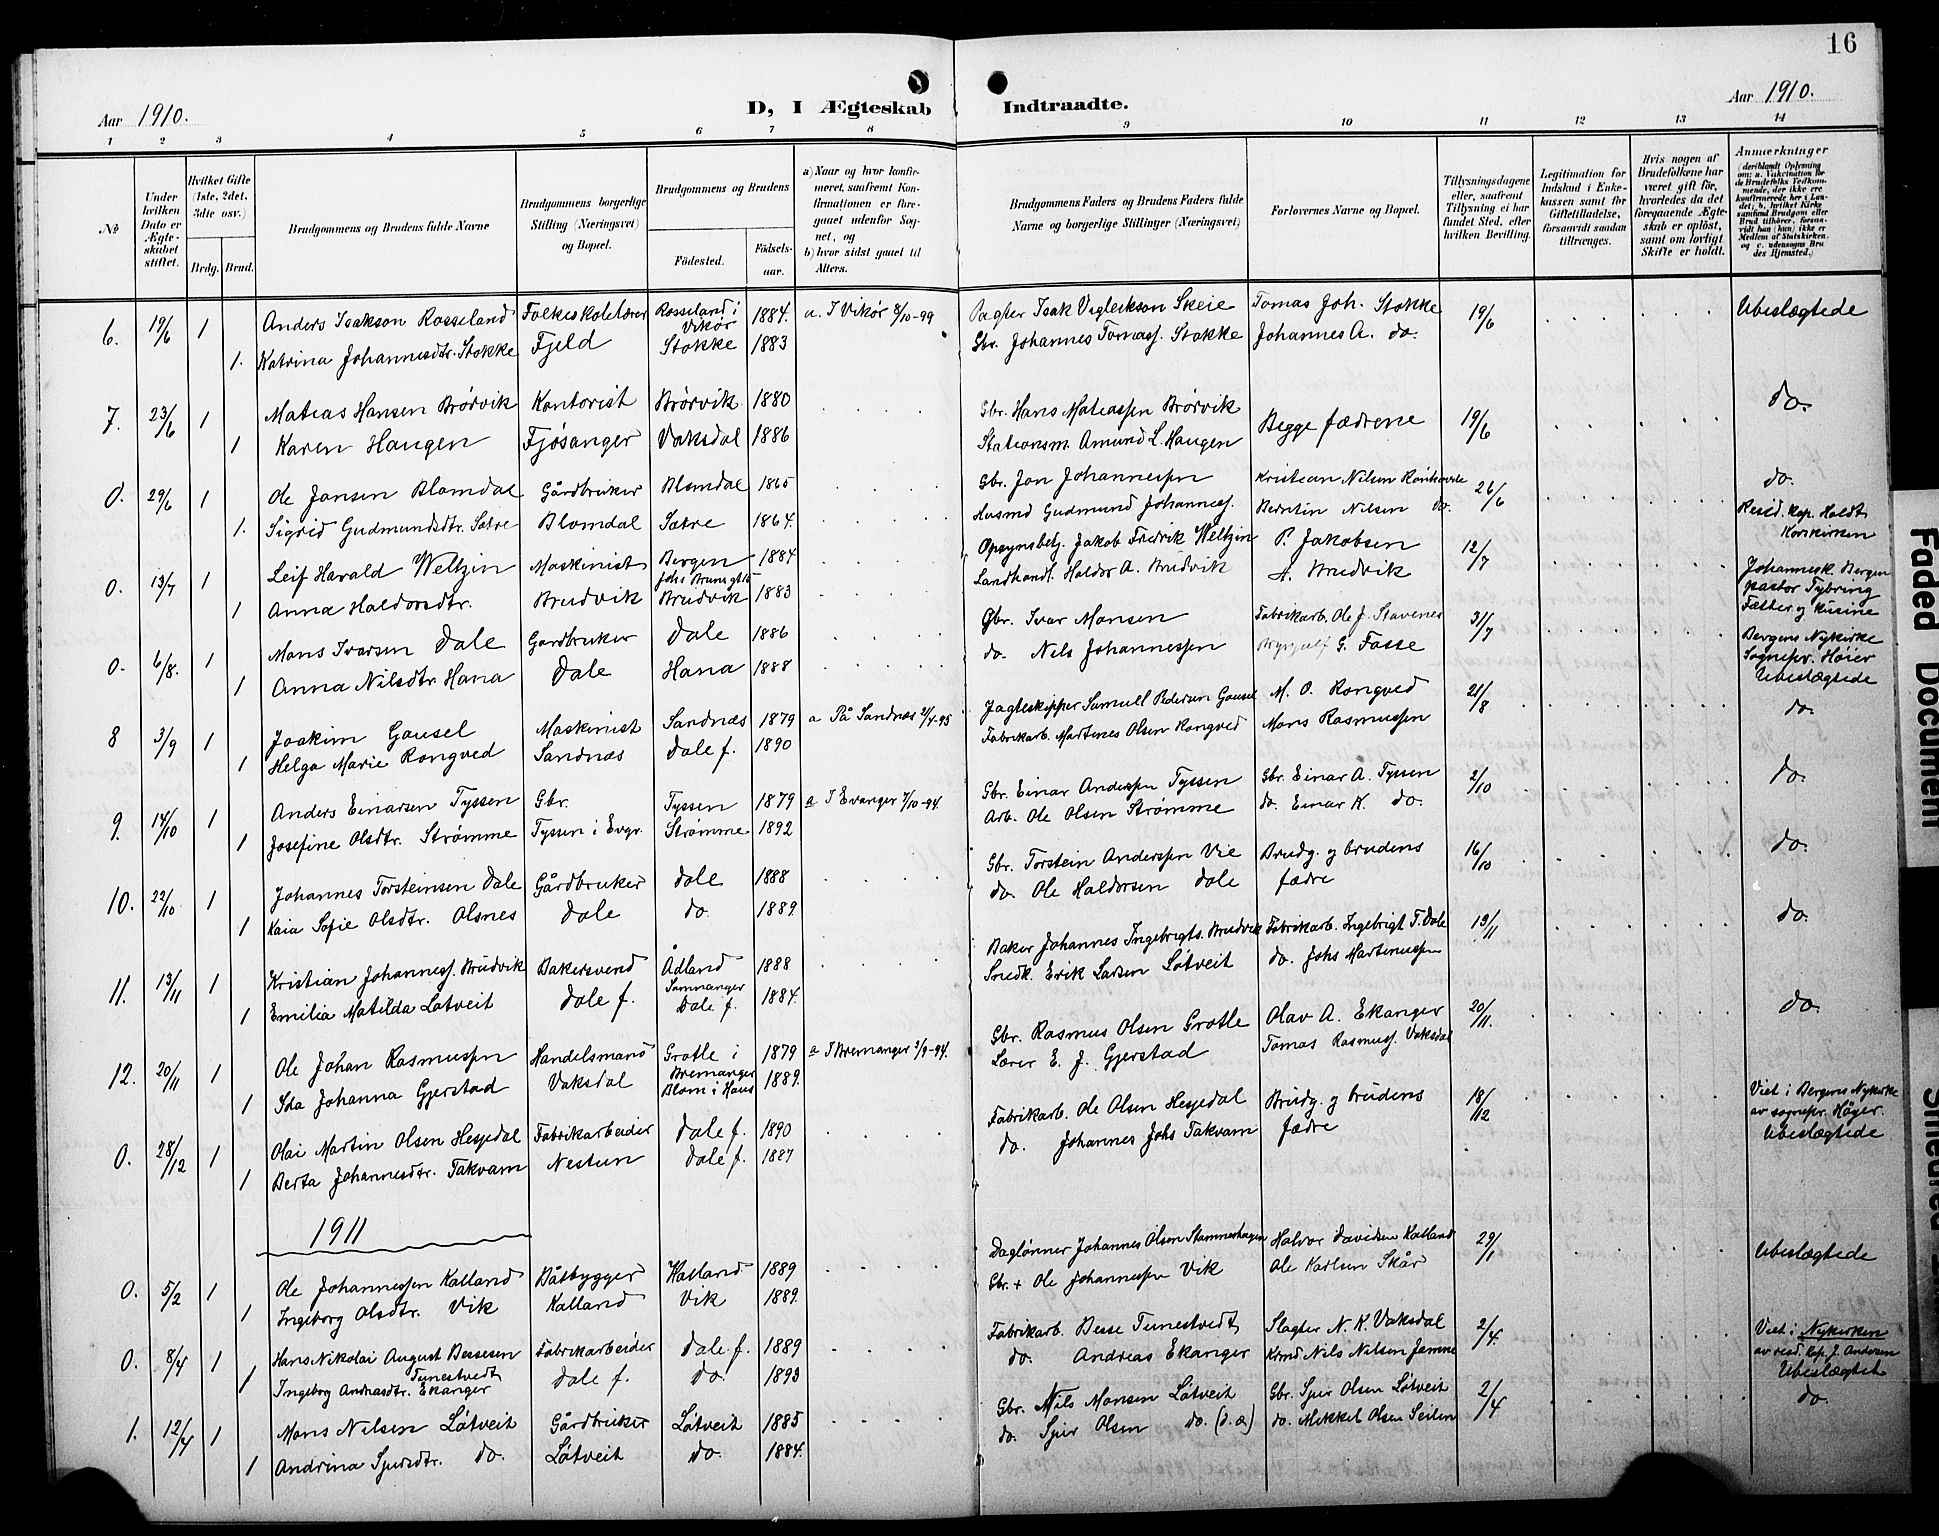 16
Aar 1910.
D, I Ægteskab Indtraadte.
Aar 1910.
1 2 3 4 5 6 7 8 9 10 11 12 13 14
No
Under hvilken Dato er Ægteskabet stiftet.
Hvilket Gifte (1ste, 2det, 3die osv.)
Brdg. Brud.
Brudgommens og Brudens fulde Navne
Brudgommens borgerlige Stilling (Næringsvei) og Bopæl.
Brudgommens og Brudens
Födested. Födselsaar.
a) Naar og hvor konfirmeret, saafremt Konfirmationen er foregaaet udenfor Sognet, og
b) hvor sidst gaaet til Alters.
Brudgommens Faders og Brudens Faders fulde Navne og borgerlige Stillinger (Næringsvei)
Forlovernes Navne og Bopæl.
Tillysningsdagene eller, saafremt Tillysning ei har fundet Sted, efter hvilken Bevilling.
Legitimation for Indskud i Enkekassen samt for Giftetilladelse, forsaavidt saadan tiltrænges.
Hvis nogen af Brudefolkene har været gift før, hvorledes da det foregaaende Ægteskab er oplöst, samt om lovligt Skifte er holdt.
Anmærkninger
(deriblandt Oplysning om: a. Vakcination for de Brudefolks Vedkommende, der ikke ere konfirmerede her i Landet; b. hvilket Kirkesamfund Brudgom eller Brud tilhører, forsaavidt han (hun) ikke er Medlem af Statskirken. og c. udensogns Brudes Hjemsted.)
6. 19/6 1 Anders Isakson Rosseland Folkeskolelærer Rosseland i Vikør 1884. a. I Vikør 8/10-99 Pagter Isak Vigleikson Skeie Tomas Joh. Stokke 19/6 Ubeslægtede
1. Katrina Johannesdtr. Stokke Fjeld Stokke 1883 Gbr. Johannes Tomass. Stokke Johannes A. do.
7. 23/6 1 Matias Hansen Brørvik Kontorist Brørvik 1880 Gbr. Hans Matiassen Brørvik Begge fædrene 19/6 do.
1 Karen Haugen Fjøsanger Vaksdal 1886 Stationsm. Amund L. Haugen
0. 29/6 1 Ole Jonsen Blomdal Gårdbruker Blomdal 1865 Gbr. Jon Johannessen Kristian Nilsen 26/6 do.
1. Sigrid Gudmundsdtr. Sætre Blomdal Sætre 1864. Husmd Gudmund Johanness. Berntin Nilsen do. Resid. Kap. Holdt Korskirken
0. 13/7 1 Leif Harald Weltzin Maskinist Bergen 1884 Opsynsbetj. Jakob Fredrik Weltzin P. Jakobsen 12/7 Johannesk. Bergen pastor Tybring
1 Anna Haldorsdtr. Brudvik Brudvik 1883 Landhandl. Haldor A. Brudvik A. Brudvik Fætter og kusine
0. 6/8. 1 Mons Ivarsen Dale Gårdbruker Dale 1886 Gbr. Ivar Monsen Fabrikarb. Ole J. Stavenes 31/7 Bergens Nykirke Sognepr. Høier
1 Anna Nilsdtr Hana Dale Hana 1888 do. Nils Johannessen G. Fosse Ubeslægtede
8 3/9 1 Joakim Gausel Maskinist Sandnæs 1879 a På Sandnæs 2/4-95 Jagteskipper Samuell Pedersen Gausel M. O. Rongved 21/8 do.
1 Helga Marie Rongved Sandnæs Dale f. 1890 Fabrikarb. Martines Olsen Rongved Mons Rasmussen
9. 14/10 1 Anders Einarsen Tyssen Gbr. Tyssen 1879 a I Evanger 7/10-94. Gbr. Einar Anderssen Tyssen Gbr. Einar A. Tyssen 2/10 do.
1 Josefine Olsdtr. Strømme Tyssen i Evgr. Strømme 1892 Arb. Ole Olsen Strømme do. Einar K. do.
10. 22/10 1 Johannes Torsteinsen Dale Gårdbruker Dale 1888 Gbr. Torstein Anderssen Vie Brudg. og brudens 16/10 do.
1 Kaia Sofie Olsdtr. Olsnes Dale do. 1889. do. Ole Haldorsen Dale fædre
11. 13/11 1 Kristian Johanness. Brudvik Bakersvend Ådland Samnanger 1888 Baker Johannes Ingebrigts. Brudvik Fabrikarb. Ingebrigt T. Dale 13/11 do.
1 Emilia Matilda Løtveit Dale f. Dale f. 1884. Snedk. Erik Larsen Løtveit do. Johs Martinussen
12. 20/11 1 Ole Johan Rasmussen Handelsmand Grotle i Bremanger 1879 a I Bremanger 2/9-94. Gbr. Rasmus Olsen Grotle Olav A. Ekanger 20/11. do.
1 Ida Johanna Gjerstad Vaksdal Blom i Haus 1889. Lærer E. J. Gjerstad Tomas Rasmuss. Vaksdal
0. 28/12 1 Olai Martin Olsen Hesjedal Fabrikarbeider Dale f. 1890 Fabrikarb. Ole Olsen Hesjedal Brudg. og brudens 18/12 Viet i Bergens Nykirke av sognepr. Höyer.
1 Berta Johannesdtr. Takvam Nestun Dale f. 1887 do. Johannes Johs Takvam fædre Ubeslægtede
1911
0. 5/2 1 Ole Johannessen Kalland Båtbygger Kalland 1889 Daglønner Johannes Olsen Stammeshagen Halvor Davidsen Kalland 29/1 Ubeslægtede
1 Ingeborg Olsdtr. Vik Kalland Vik 1889. Gbr. + Ole Johannessen Vik Ole Karlsen Skår
0. 8/4 1 Hans Nikolai August Bessesen Tunestvedt Fabrikarbeider Dale f. 1889 Fabrikarb. Besse Tunestvedt Slagter N. K. Vaksdal 2/4. Viet i Nykirken av resd. Kap. J. Andersen
1 Ingeborg Andreasdtr. Ekanger Dale f. do. 1893 do. Andreas Ekanger Krmd Nils Nilsen Jamne Ubeslægtet
1. 12/4 1 Mons Nilsen Løtveit Gårdbruker Løtveit 1885 Gbr. Nils Monsen Løtveit Gbr. Sjur Olsen Løtveit 2/4 do.
1 Andrina Sjursdtr. do. Løtveit do. 1884. do. Sjur Olsen do. (d.æ) do. Mikkel Olsen Seilen
Faded Document